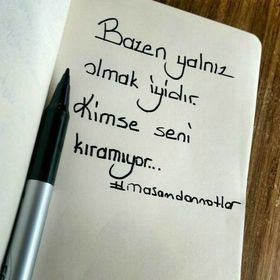 Bazen yalnız
olmak iyidir.
Kimse seni
kıramıyor...
#masamdannotlar